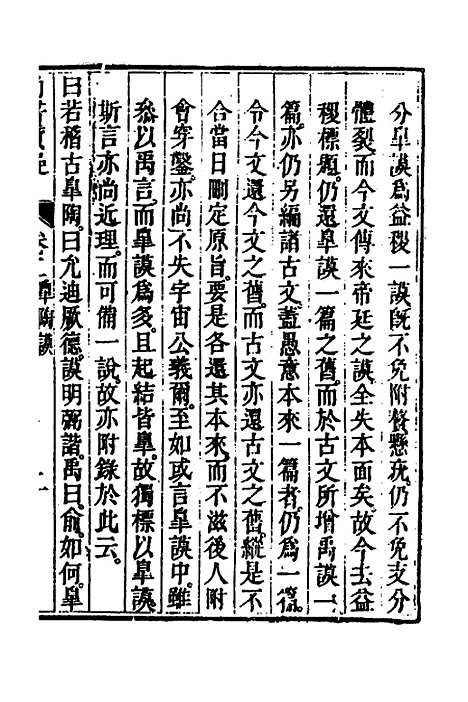 分皐謨爲益稷一謨旣不免附贅懸疣仍不免支分
體裂而今文傳來帝廷之謨全失本面矣故今去益
稷標題仍還皐謨一篇之舊而於古文所增禹謨一
篇亦仍另編諸古文蓋愚意本來一篇者仍爲一篇
令今文還今文之舊而古文亦還古文之舊縱是不
合當日刪定原旨要是各還其本來而不滋後人附
會穿鑿亦尚不失宇宙公義爾至如或言皐謨中雖
叅以禹言而皐謨爲多且起結皆皐故獨標以皐謨
斯言亦尚近理而可備一說故亦附錄於此云
曰若稽古皐陶曰允迪厥德謨明弼諧禹曰俞如何皐
尚書
卷二 皐陶謨